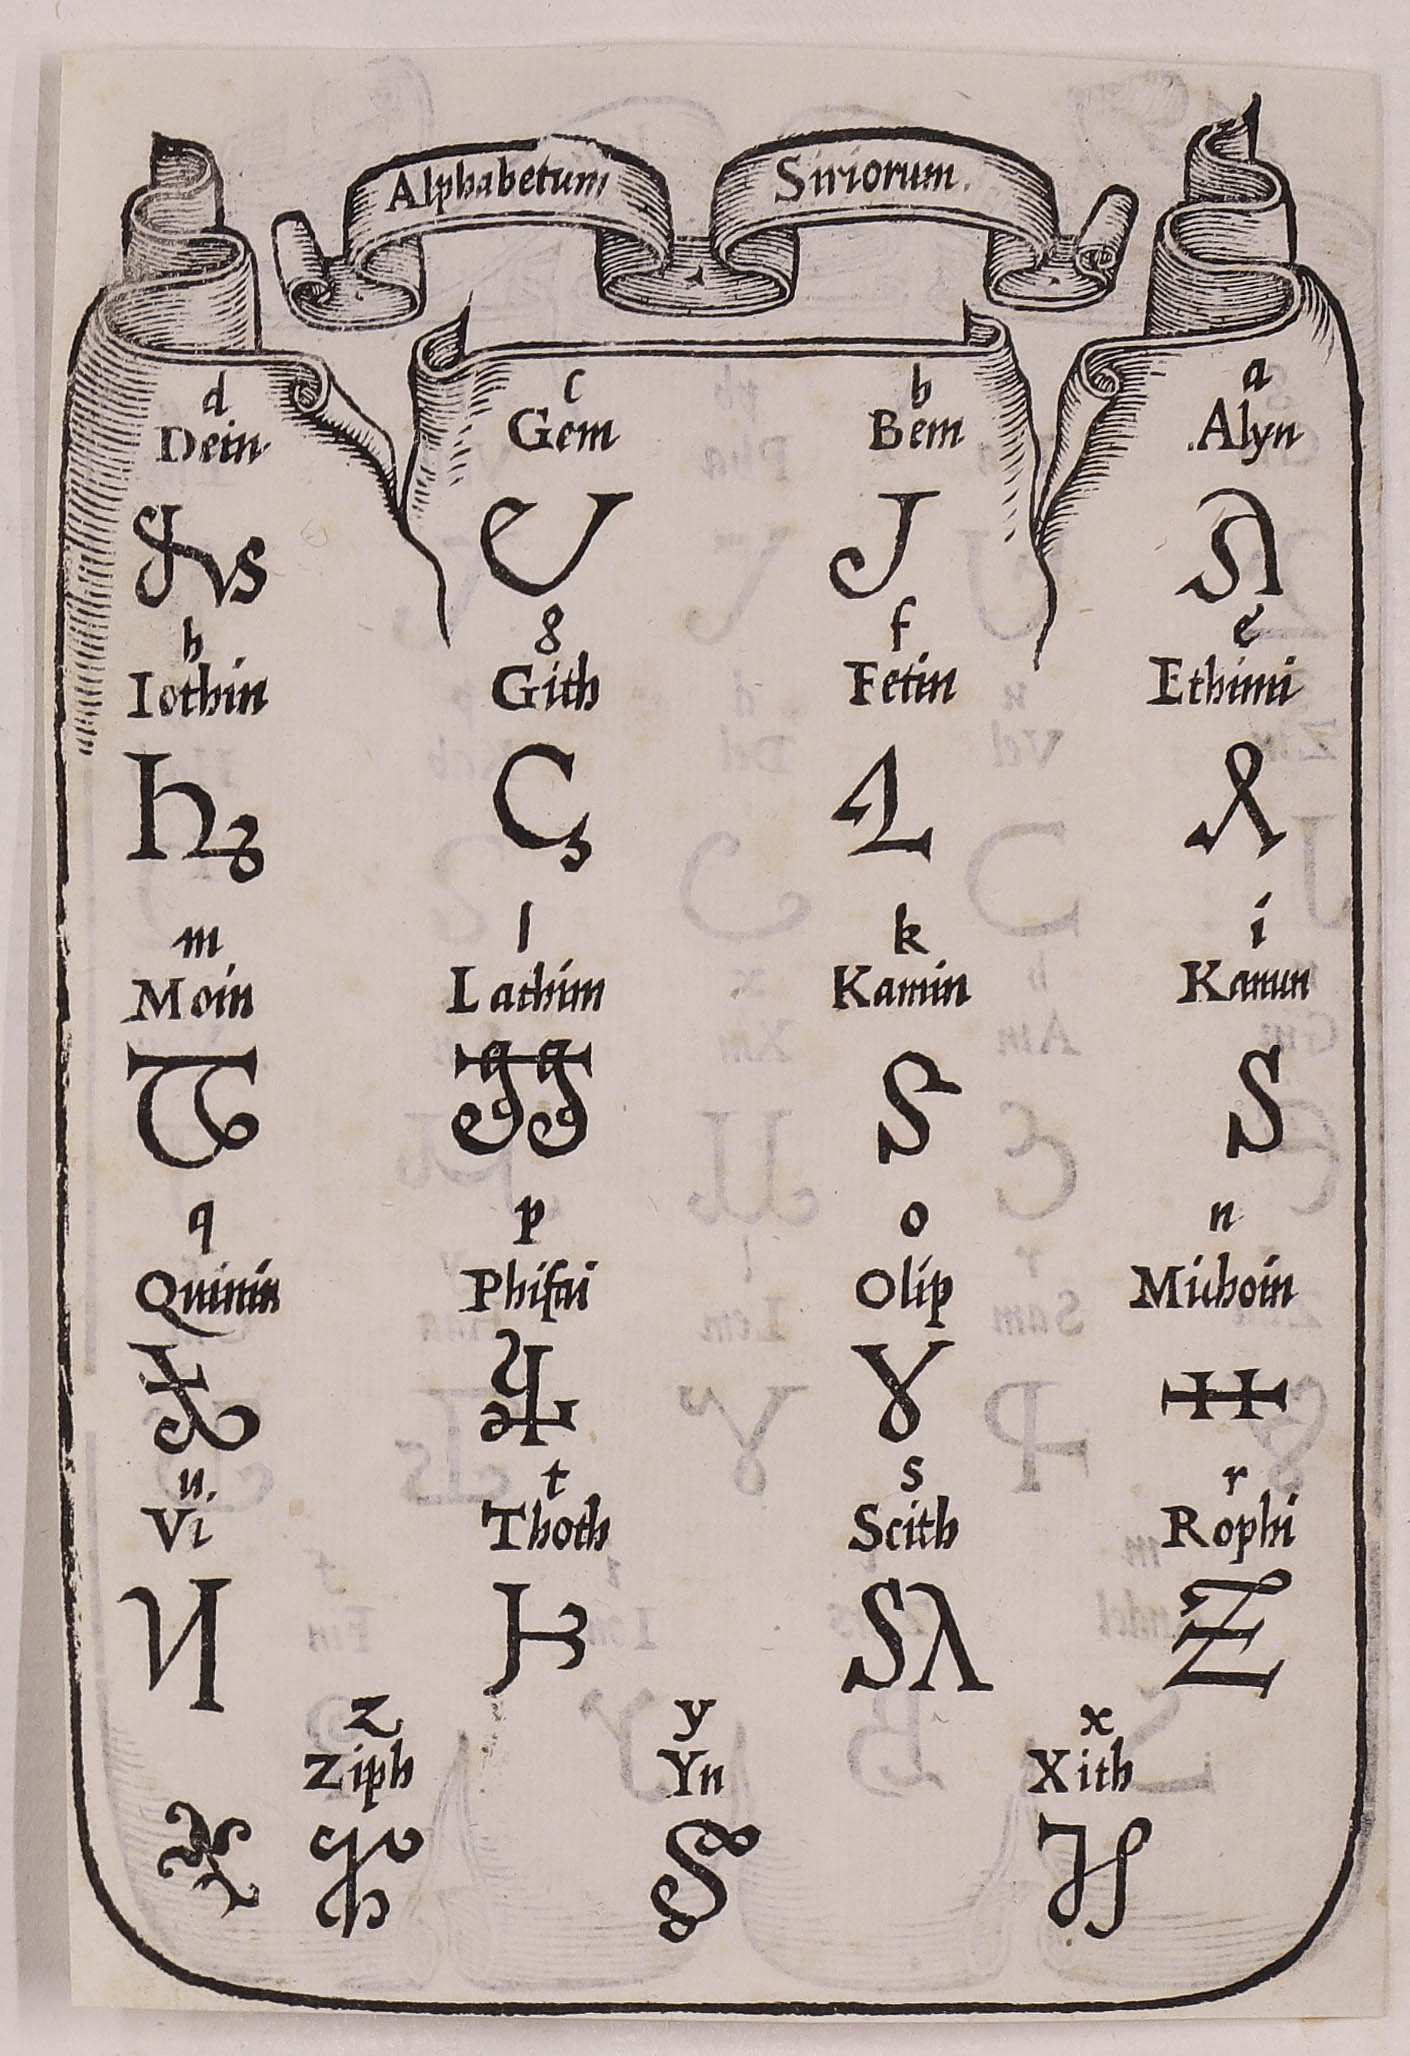 Alphabetum Siriorum.
d c b a
Dein Gem Bem Alyn
h g f e
Iothin Gith Fetin Ethimi
m l k i
Moin Lathim Kamin Kanun
q p o n
Quinin Phisai Olip Michoin
u t s r
Vi Thoth Scith Rophi
z y x
Ziph Yn Xith